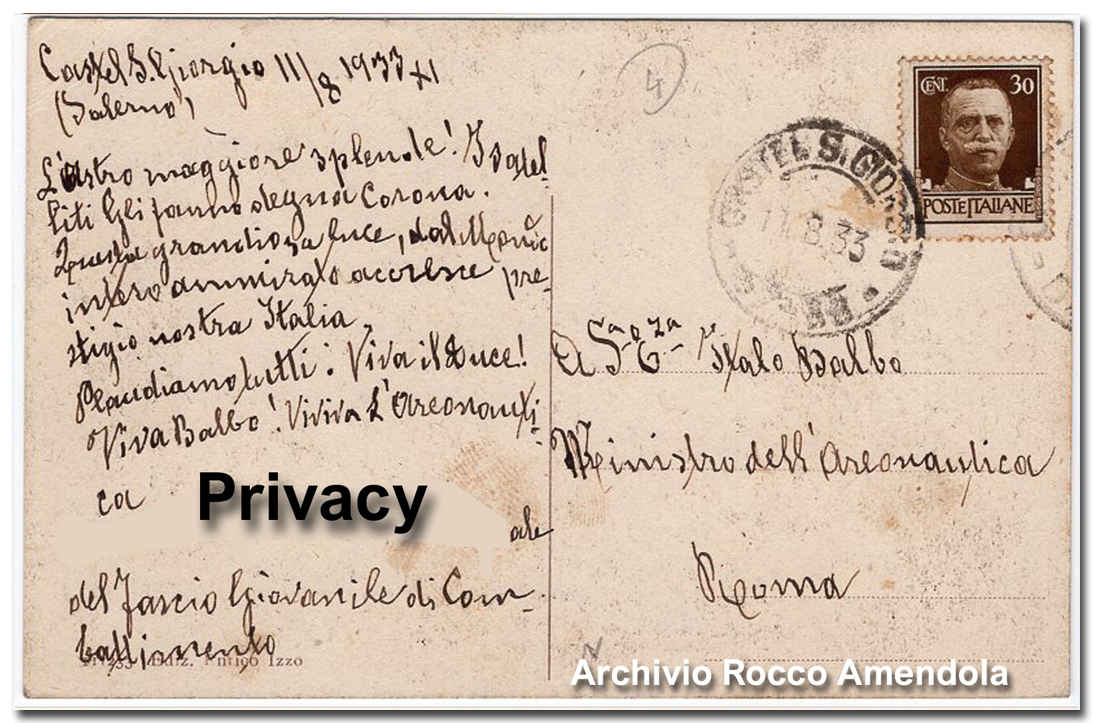 Castel S. Giorgio 11/8 1933 XI
(Salerno)
L'astro maggiore splende! I satel-
liti gli fanno degna Corona.
Questa grandiosa luce, dal Mondo
intero ammirata accresce pre-
stigio nostra Italia
Plaudiamo tutti: Viva il Duce!
Viva Balbo! Viviva L'Areonauti-
ca
Privacy
ale
del Fascio Giovanile di Com-
battimento
Ediz. Enrico Izzo
4
CENT. 30
POSTE ITALIANE
CASTEL S. GIORGIO
11.8.33
A S.a E.za Italo Balbo
Ministro dell'Areonautica
Roma
Archivio Rocco Amendola